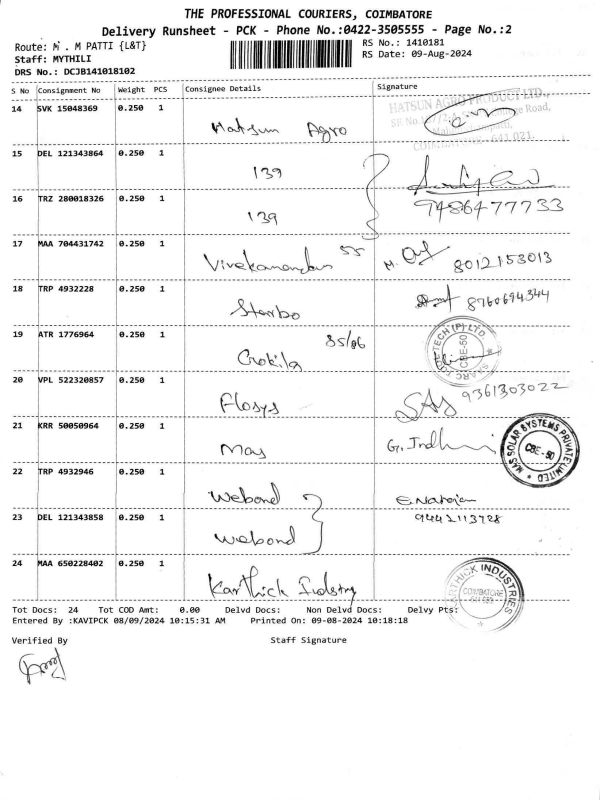 THE PROFESSIONAL COURIERS, COIMBATORE
Delivery Runsheet - PCK - Phone No.:0422-3505555 - Page No.:2
Route: M . M PATTI {L&T}
RS No.: 1410181
Staff: MYTHILI
RS Date: 09-Aug-2024
DRS No.: DCJB141018102
S No Consignment No Weight PCS Consignee Details Signature
14 SVK 15048369 0.250 1 Hatsun Agro
HATSUN AGRO PRODUCT LTD.,
15 DEL 121343864 0.250 1 139
16 TRZ 280018326 0.250 1 139 9486477733
17 MAA 704431742 0.250 1 Vivekanandan 55 M. 8012153013
18 TRP 4932228 0.250 1 Starbo 8760694344
19 ATR 1776964 0.250 1 Crokila 85/86
TECH (P) LTD
CBE-50
20 VPL 522320857 0.250 1 Flosys SAS 9361303022
21 KRR 50050964 0.250 1 Mas G. Indhu
MAS SOLAR SYSTEMS PRIVATE LIMITED
CBE-50
22 TRP 4932946 0.250 1 Webond E. Natrajan
23 DEL 121343858 0.250 1 Webond 9442113728
24 MAA 650228402 0.250 1 Karthick Indstry
KARTHICK INDUSTRIES
COIMBATORE
Tot Docs: 24 Tot COD Amt: 0.00 Delvd Docs: Non Delvd Docs: Delvy Pts:
Entered By :KAVIPCK 08/09/2024 10:15:31 AM Printed On: 09-08-2024 10:18:18
Verified By Staff Signature